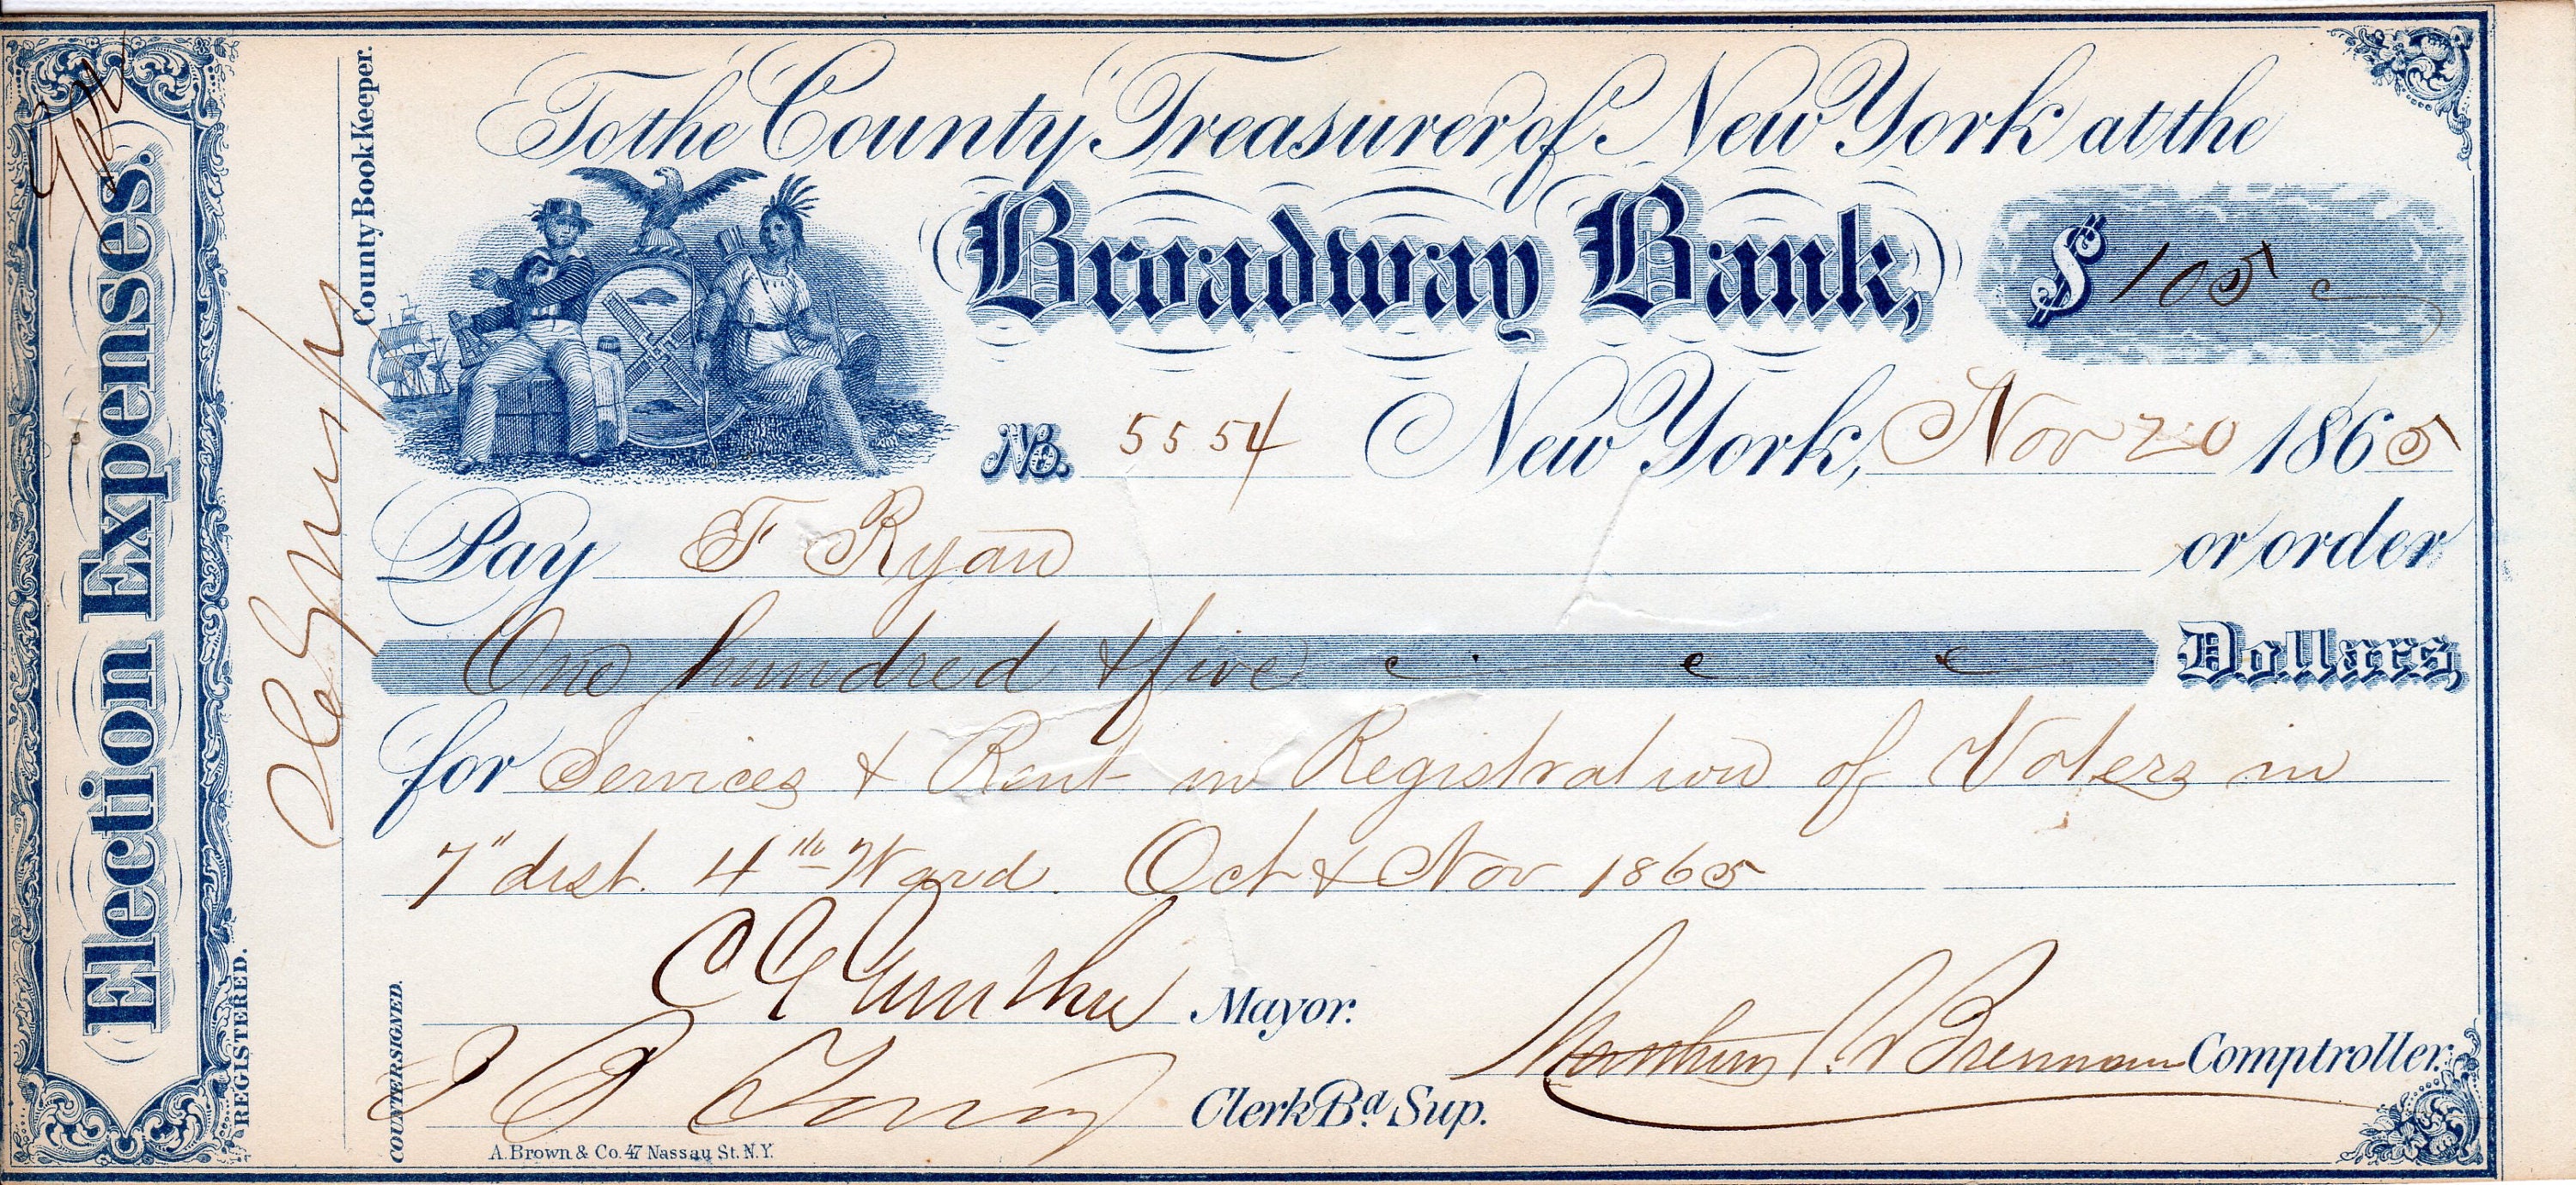 Election Expenses.
REGISTERED.
County Book Keeper.
To the County Treasurer of New York at the
Broadway Bank,
$ 105
No. 5554 New York, Nov 20 1865
Pay F Ryan or order
One hundred & five Dollars,
for Services & Rent in Registration of Voters in
7" dist. 4th Ward. Oct & Nov 1865
COUNTERSIGNED.
C Gunther Mayor.
Matthew T. Brennan Comptroller.
Clerk Bd. Sup.
A. Brown & Co. 47 Nassau St. N.Y.